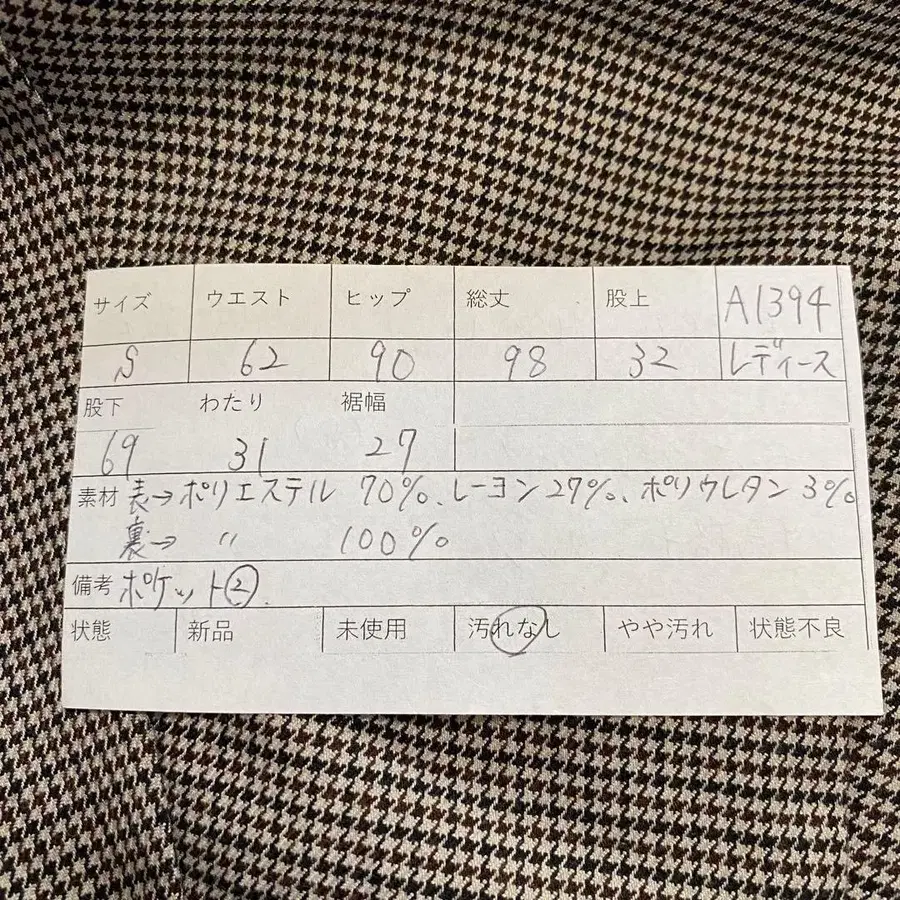 サイズ ウエスト ヒップ 総丈 股上 A1394
S 62 90 98 32 レディース
股下 わたり 裾幅
69 31 27
素材 表→ポリエステル 70%、レーヨン27%、ポリウレタン 3%
裏→ 〃 100%
備考 ポケット②.
状態 新品 未使用 汚れなし やや汚れ 状態不良